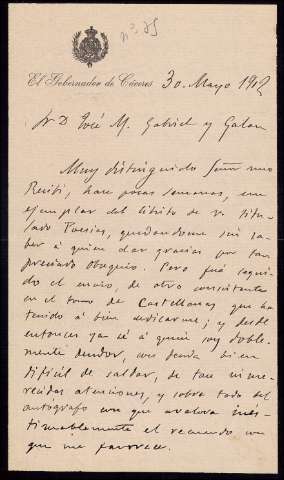 nº 75
El Gobernador de Cáceres 30. Mayo 1902
Sr D José M. Gabriel y Galan
Muy distinguido Señor mio
Recibi, hace pocas semanas, un
ejemplar del librito de v. titu-
lado Poesias, quedandome sin sa-
ber á quien dar gracias por tan
preciado obsequio. Pero fué segui-
do el envio, de otro consistente
en el tomo de Castellanas que ha
tenido á bien dedicarme; y desde
entonces ya sé á quien soy doble-
mente deudor, con deuda bien
dificil de saldar, de tan inme-
recidas atenciones, y sobre todo del
autógrafo con que avalora ines-
timablemente el recuerdo con
que me favorece.